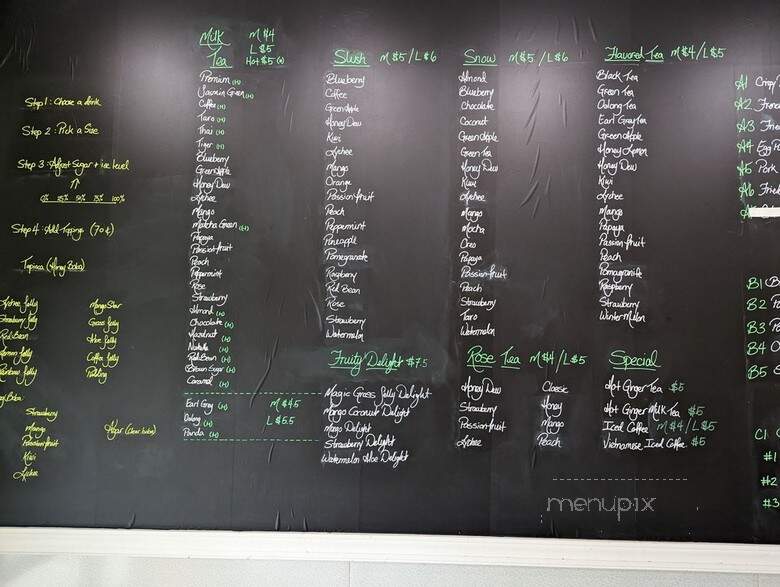 Step 1: Choose a drink
Step 2: Pick a Size
Step 3: Adjust Sugar + ice level
0% 25% 50% 75% 100%
Step 4: Add Topping (70¢)
Tapioca (Honey Boba)
Lychee Jelly
Strawberry Jelly
Red Bean
Rainbow Jelly
Boba:
Strawberry
Mango
Passionfruit
Kiwi
Lychee
Mango Star
Grass Jelly
Aloe Jelly
Coffee Jelly
Pudding
Agar (Clear boba)
Milk Tea
M $4
L $5
Hot $5 (H)
Premium (H)
Jasmin Green (H)
Coffee (H)
Taro (H)
Thai (H)
Tiger (H)
Blueberry
Green Apple
Honey Dew
Lychee
Mango
Matcha Green (H)
Papaya
Passion fruit
Peach
Peppermint
Rose
Strawberry
Almond (H)
Chocolate (H)
Hazelnut (H)
Nutella (H)
Red Bean (H)
Brown Sugar (H)
Caramel (H)
Earl Grey (H)
Oolong (H)
Panda (H)
M $4.5
L $5.5
Slush M $5 / L $6
Blueberry
Coffee
Green Apple
Honey Dew
Kiwi
Lychee
Mango
Orange
Passion fruit
Peach
Peppermint
Pineapple
Pomegranate
Raspberry
Red Bean
Rose
Strawberry
Watermelon
Fruity Delight $7.5
Magic Grass Jelly Delight
Mango Coconut Delight
Mango Delight
Strawberry Delight
Watermelon Aloe Delight
Snow M $5 / L $6
Almond
Blueberry
Chocolate
Coconut
Green Apple
Green Tea
Honey Dew
Kiwi
Lychee
Mango
Mocha
Oreo
Papaya
Passion fruit
Peach
Strawberry
Taro
Watermelon
Rose Tea M $4 / L $5
Honey Dew
Strawberry
Passion fruit
Lychee
Classic
Honey
Mango
Peach
Flavored Tea M $4 / L $5
Black Tea
Green Tea
Oolong Tea
Earl Gray Tea
Green Apple
Honey Lemon
Honey Dew
Kiwi
Lychee
Mango
Papaya
Passion fruit
Peach
Pomegranate
Raspberry
Strawberry
Winter Melon
Special
Hot Ginger Tea $5
Hot Ginger Milk Tea $5
Iced Coffee M $4 / L $5
Vietnamese Iced Coffee $5
A1 Crispy
A2
A3
A4 Egg
A5 Pork
A6
B1
B2
B3
B4
B5
C1
#1
#2
#3
menupix